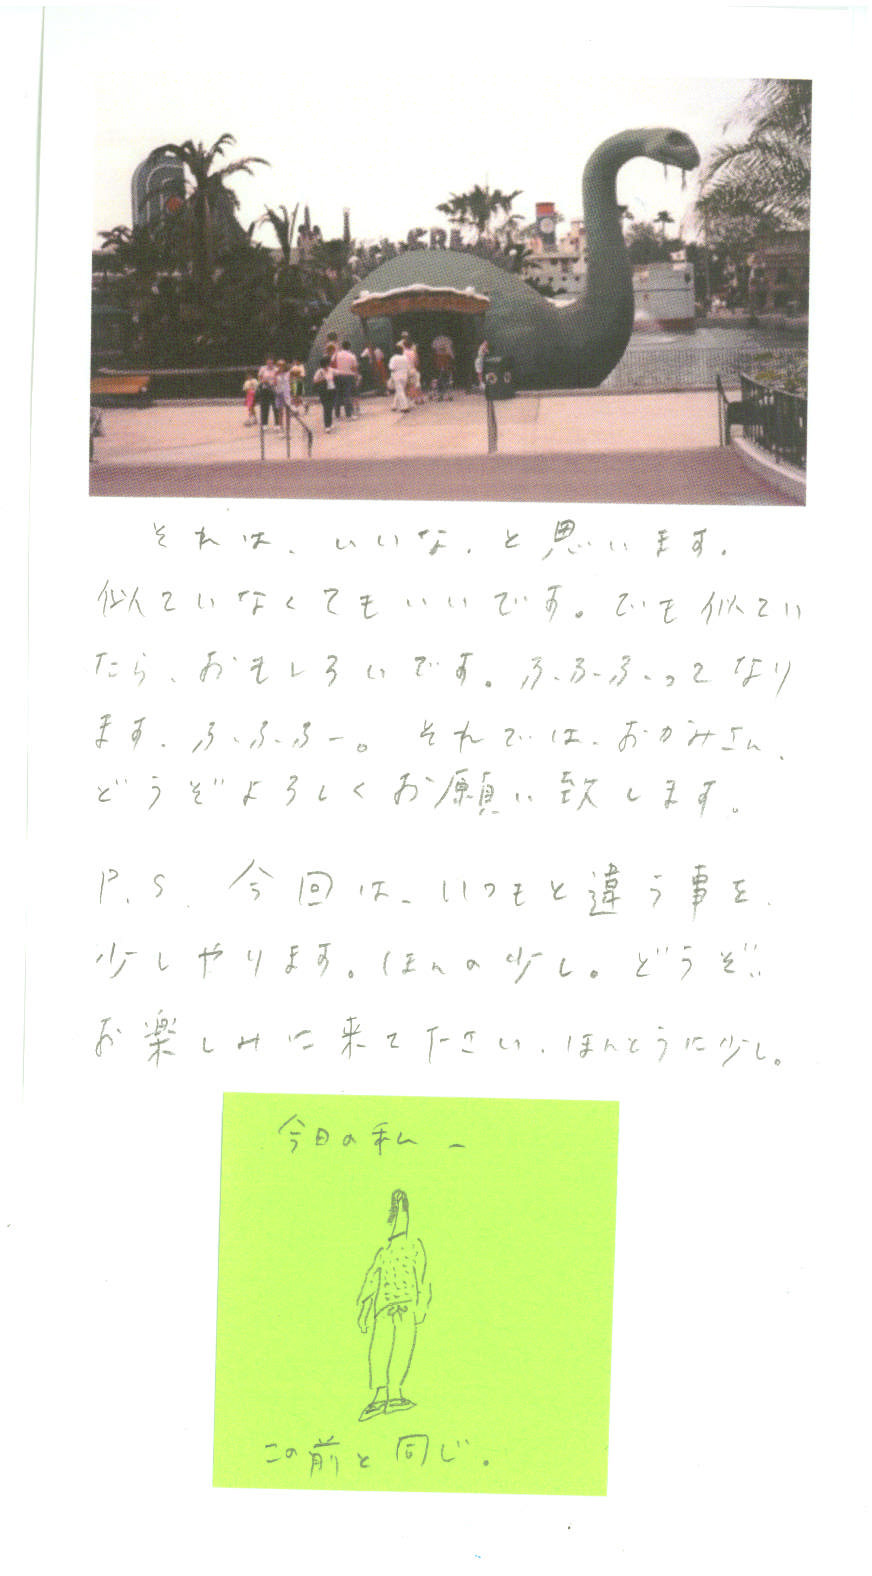 CREAM
それは、いいな、と思います。
似ていなくてもいいです。でも似てい
たら、おもしろいです。ふ、ふ、ふ、ってなり
ます、ふ、ふ、ふー。それでは、おかみさん、
どうぞよろしくお願い致します。
P.S. 今回は、いつもと違う事を、
少しやります。ほんの少し。どうぞ、
お楽しみに来て下さい、ほんとうに少し。
今日の私ー
この前と同じ。